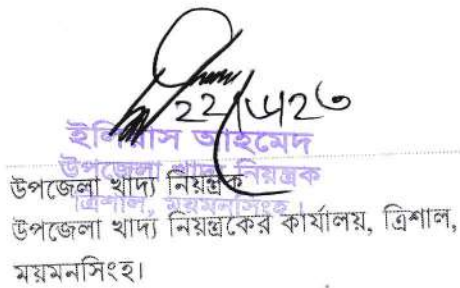 ২২/৬/২৩
ইলিয়াস আহমেদ
উপজেলা খাদ্য নিয়ন্ত্রক
ত্রিশাল, ময়মনসিংহ।
উপজেলা খাদ্য নিয়ন্ত্রক
উপজেলা খাদ্য নিয়ন্ত্রকের কার্যালয়, ত্রিশাল,
ময়মনসিংহ।